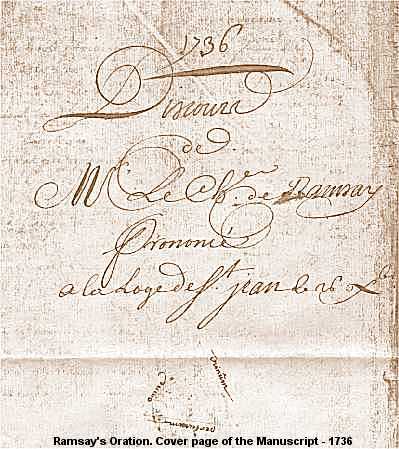 1736
Discours
de
Mr. Le Ch.er de Ramsay
Prononcé
a la Loge de St. jean le 26 Xbre
omne
trinum
perfectum
Ramsay's Oration. Cover page of the Manuscript - 1736